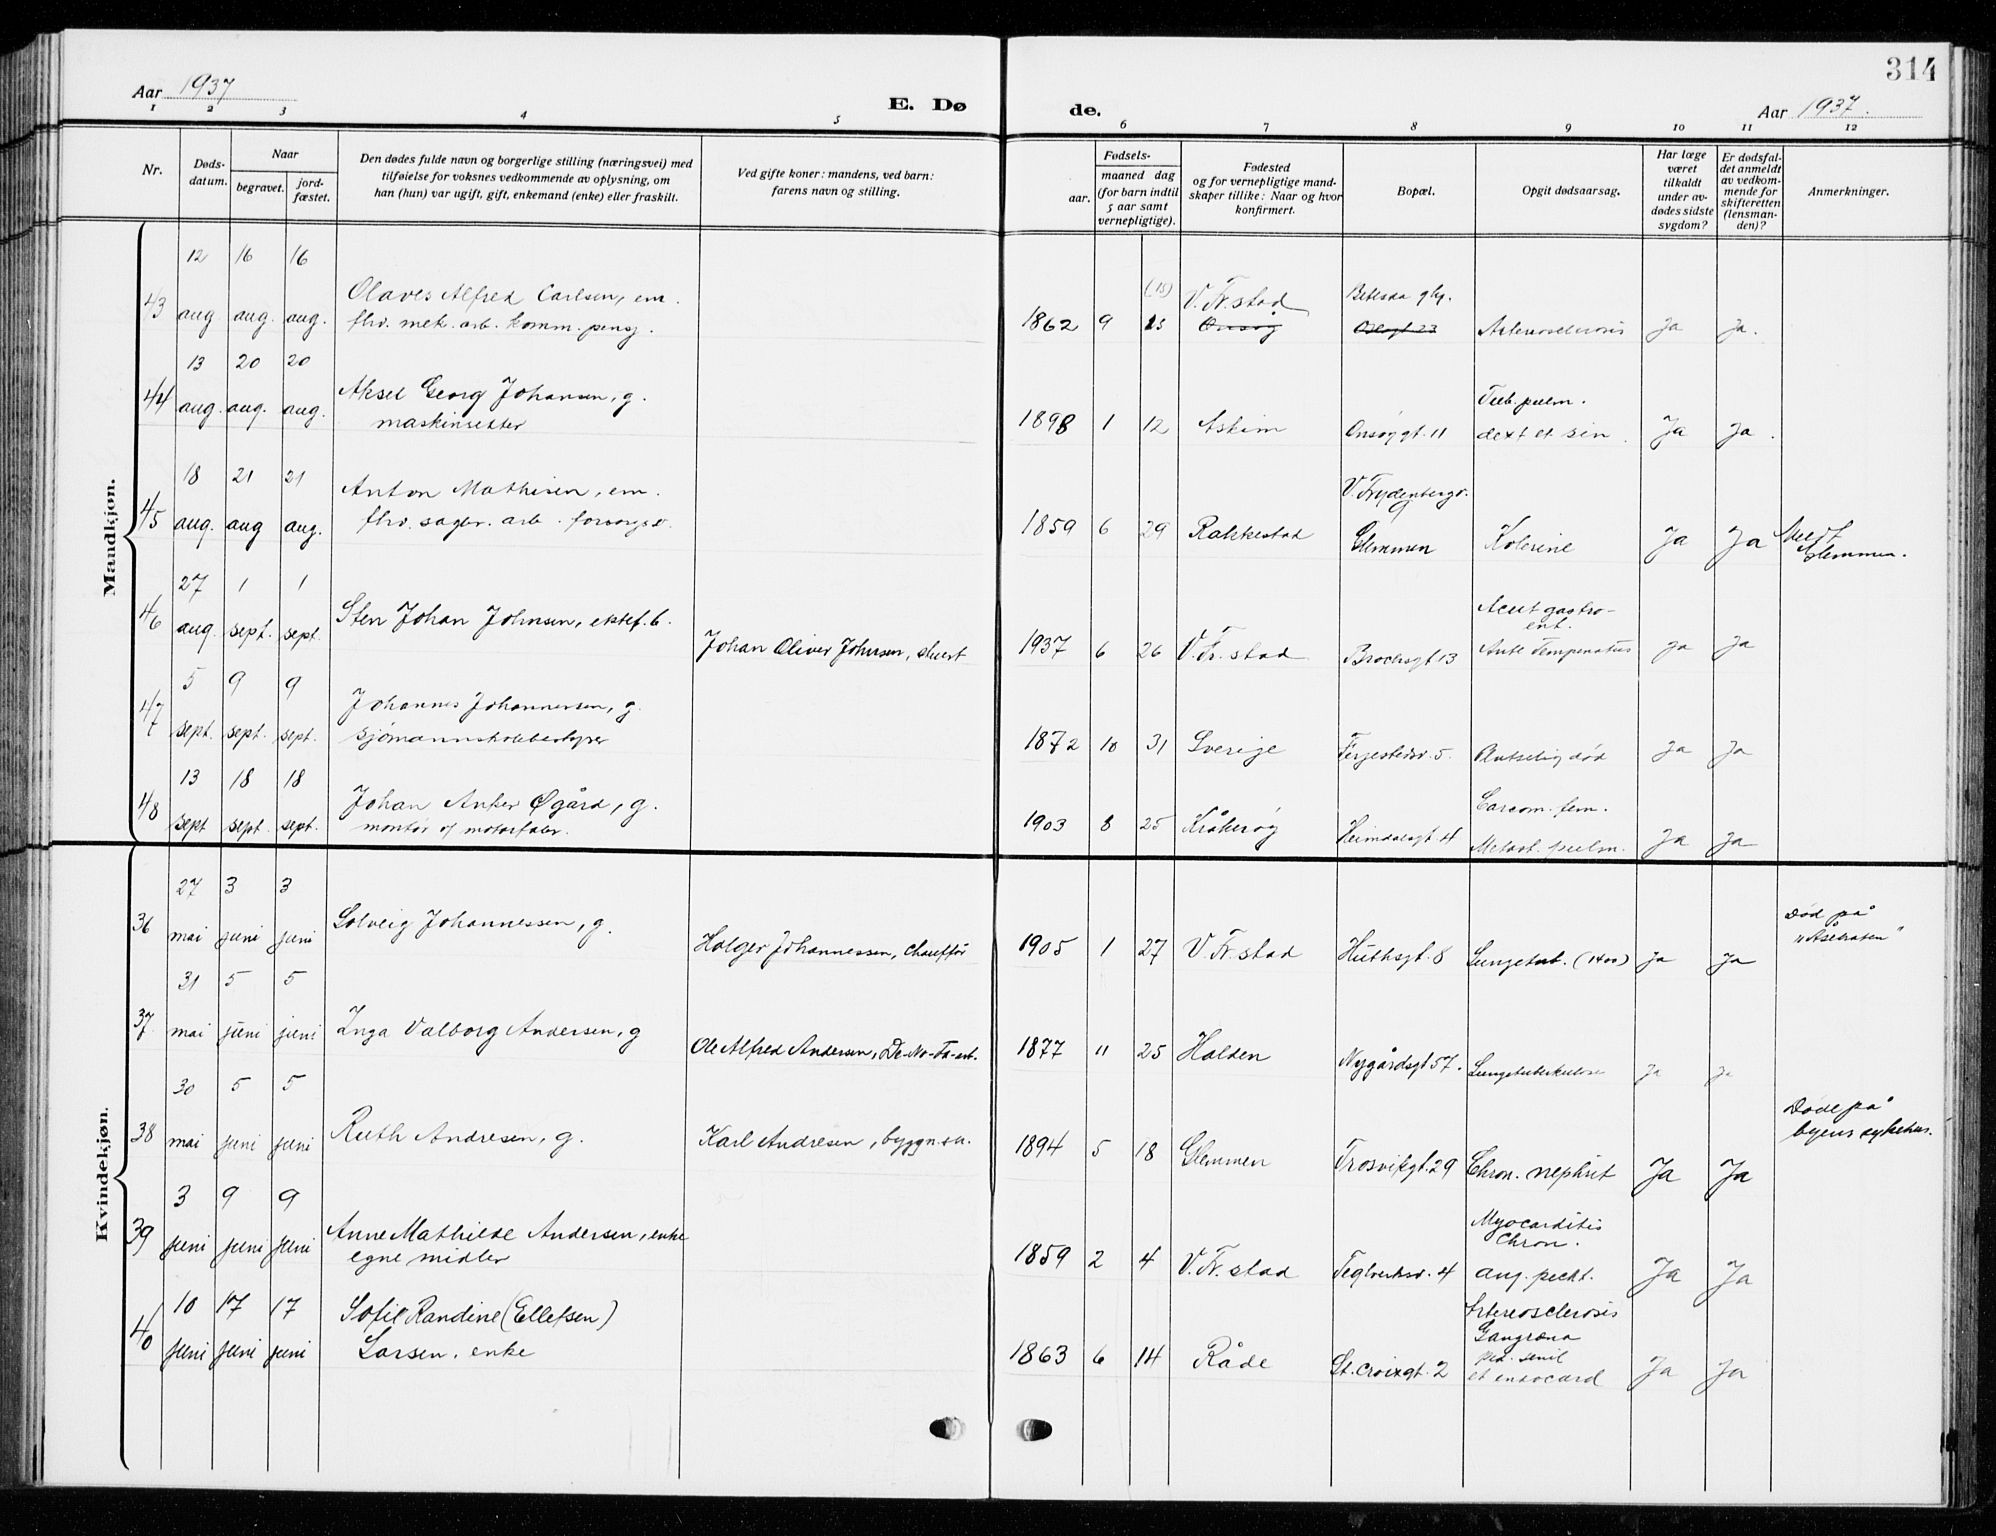 314
Aar 1937
E. Dø
de.
Aar 1937.
1 2 3 4 5 6 7 8 9 10 11 12
Nr.
Døds-
datum.
Naar
begravet.
jord-
fæstet.
Den dødes fulde navn og borgerlige stilling (næringsvei) med
tilføielse for voksnes vedkommende av oplysning, om
han (hun) var ugift, gift, enkemand (enke) eller fraskilt.
Ved gifte koner: mandens, ved barn:
farens navn og stilling.
Fødsels-
aar.
maaned dag
(for barn indtil
5 aar samt
vernepligtige).
Fødested
og for vernepligtige mand-
skaper tillike: Naar og hvor
konfirmert.
Bopæl.
Opgit dødsaarsag.
Har læge
været
tilkaldt
under av-
dødes sidste
sygdom?
Er dødsfal-
det anmeldt
av vedkom-
mende for
skifteretten
(lensman-
den)?
Anmerkninger.
Mandkjøn.
12 16 16
43 aug. aug. aug.
Olaves Alfred Carlsen, em.
fhv. mek. arb. komm. pensj.
1862 9 15 (15)
V. Fr.stad
Onsøy
Betesda
Arteriosclerosis Ja Ja.
13 20 20
44 aug. aug. aug.
Aksel Georg Johansen, g.
maskinsetter
1898 1 12 Askim Onsøygt. 11
Tub. pulm.
dext et sin. Ja Ja.
18 21 21
45 aug. aug aug.
Anton Mathisen, em.
fhv. sagbr. arb.
1859 6 29 Rakkestad
V. Frydenbergv.
Glemmen Kolerine Ja Ja
Meldt
Glemmen.
27 1 1
46 aug. sept. sept.
Sten Johan Johnsen, ektef. b.
Johan Oliver Johnsen, stuert
1937 6 26 V. Fr.stad Brochsgt 13
Acut gastro-
ent.
Ja Ja
5 9 9
47 sept. sept. sept.
Johannes Johannessen, g.
sjømannsskolebestyrer
1872 10 31 Sverige Ferjestedsv. 5. Plutselig død Ja Ja
13 18 18
48 sept sept. sept.
Johan Anker Øgård, g.
montør
1903 8 25 Kråkerøy Heimdalsgt 4
Sarcom. fem.
Metast. pulm. Ja Ja
Kvindekjøn.
27 3 3
36 mai juni juni
Solveig Johannessen, g.
Holger Johannessen, chauffør
1905 1 27 V. Fr.stad Huthsgt. 8 Lungetub. (1400) Ja Ja
Død på
"Åsebråten"
31 5 5
37 mai juni juni
Inga Valborg Andersen, g
Ole Alfred Andersen, De-No-Fa-arb.
1877 11 25 Halden Nygårdsgt 57. Lungetuberkulose Ja Ja
30 5 5
38 mai juni juni
Ruth Andresen, g.
Karl Andresen, byggn.sn.
1894 5 18 Glemmen Trosvikgt. 29 Chron. nephrit Ja Ja
Døde på
byens sykehus.
3 9 9
39 juni juni juni
Anne Mathilde Andersen, enke
egne midler
1859 2 4 V. Fr. stad Teglverksv. 4
Myocarditis
Chron.
ang. pect. Ja Ja
10 17 17
40 juni juni juni
Sofie Randine (Ellefsen)
Larsen. enke
1863 6 14 Råde St. Croixgt. 2
Arteriosclerosis
Gangræna
ped. senil
et endocard Ja Ja